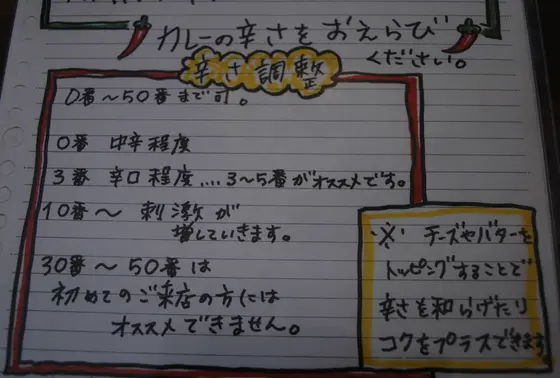 カレーの辛さをおえらび
ください。
辛さ調整
0番～50番まで可。
0番 中辛程度
3番 辛口程度....3～5番がオススメです。
10番～ 刺激が
増していきます。
30番～50番は
初めてのご来店の方には
オススメできません。
※ チーズやバターを
トッピングすることで
辛さを和らげたり
コクをプラスできます